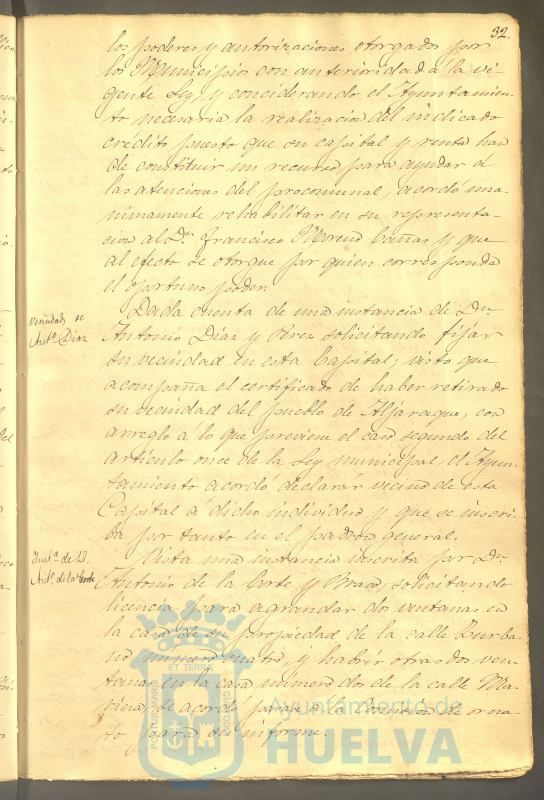 32.
los poderes y autorizaciones otorgados por
los Municipios con anterioridad á la vi-
gente Ley y considerando el Ayuntamien-
to necesaria la realización del indicado
crédito puesto que su capital y renta han
de constituir un recurso para ayudar á
las atenciones del procomunal, acordó una-
nimamente rehabilitar en su representa-
cion al Dn. Francisco Moreno Cañas y que
al efecto se otorgue por quien corresponda
el oportuno poder.
vecindad de
Antº Diaz
Dada cuenta de una instancia de Dn
Antonio Diaz y Perez solicitando fijar
su vecindad en esta Capital; visto que
acompaña el certificado de haber retirado
su vecindad del pueblo de Aljaraque, con
arreglo á lo que previene el caso segundo del
artículo once de la Ley municipal, el Ayun-
tamiento acordó declarar vecino de esta
Capital a dicho individuo y que se inscri-
ba por tanto en el padron general.
Instª de D.
Antº de la Corte
Vista una instancia inscrita por Dn.
Antonio de la Corte y Bravo, solicitando
licencia para agrandar dos ventanas en
la casa de su propiedad de la calle Burba-
no número cuatro, y habrir otras dos ven-
tanas en la casa número dos de la calle Ma-
rina, se acordó pase a la Comision de orna-
to para su informe.
PORTUS MARIS
ET TERRÆ
CUSTODIA
Ayuntamiento de
HUELVA